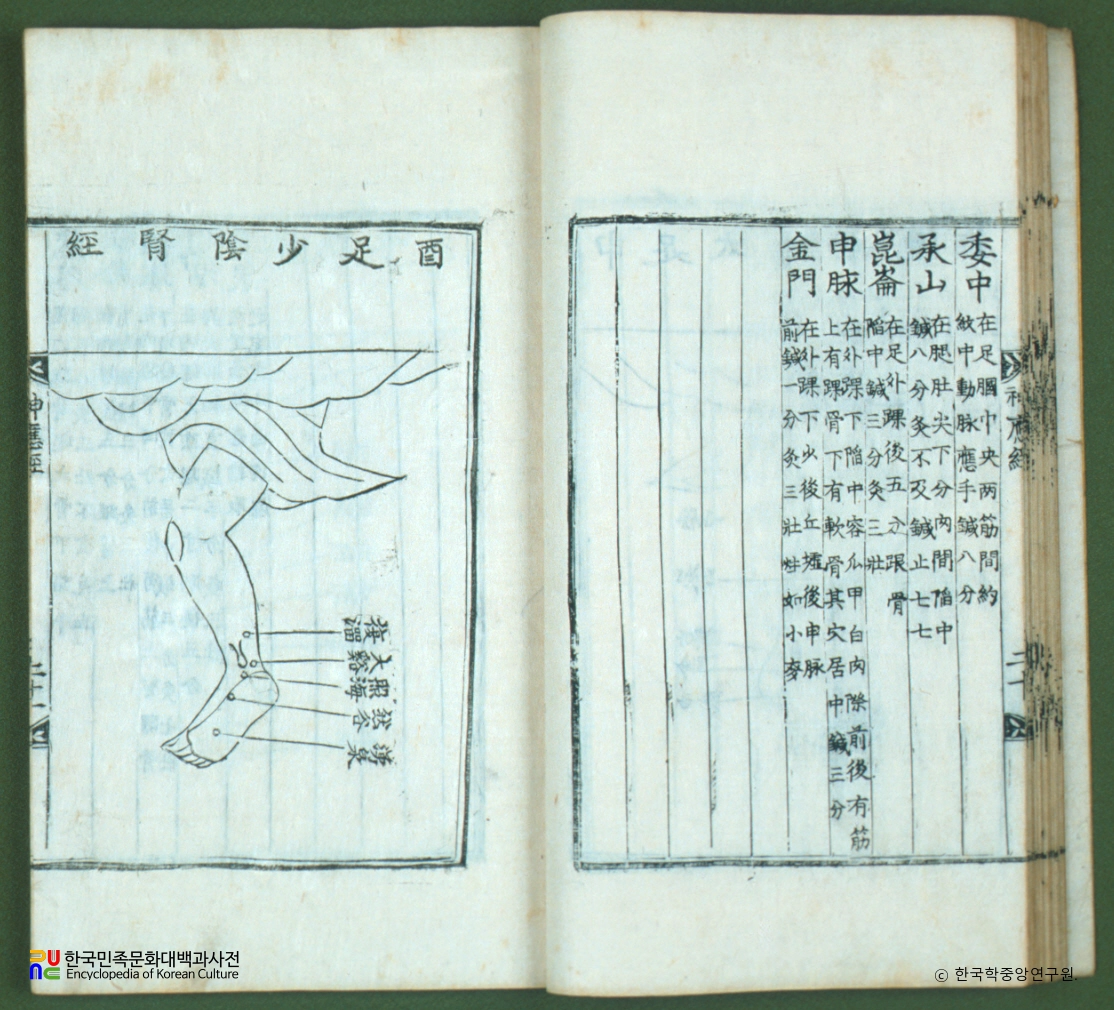 委中 在足膕中央两筋間約
紋中動脉應手鍼八分
承山 在腿肚尖下分肉間陷中
鍼八分灸不及鍼止七七
崑崙 在足外踝後五分跟骨
陷中鍼三分灸三壯
申脉 在外踝下陷中容爪甲白肉際前後有筋
上有踝骨下有軟骨其穴居中鍼三分
金門 在外踝下少後丘墟後申脉
前鍼一分灸三壯炷如小麥
神應經
二十
酉足少陰腎經
復溜
太谿
照海
然谷
湧泉
神應經
한국민족문화대백과사전
Encyclopedia of Korean Culture
ⓒ 한국학중앙연구원.